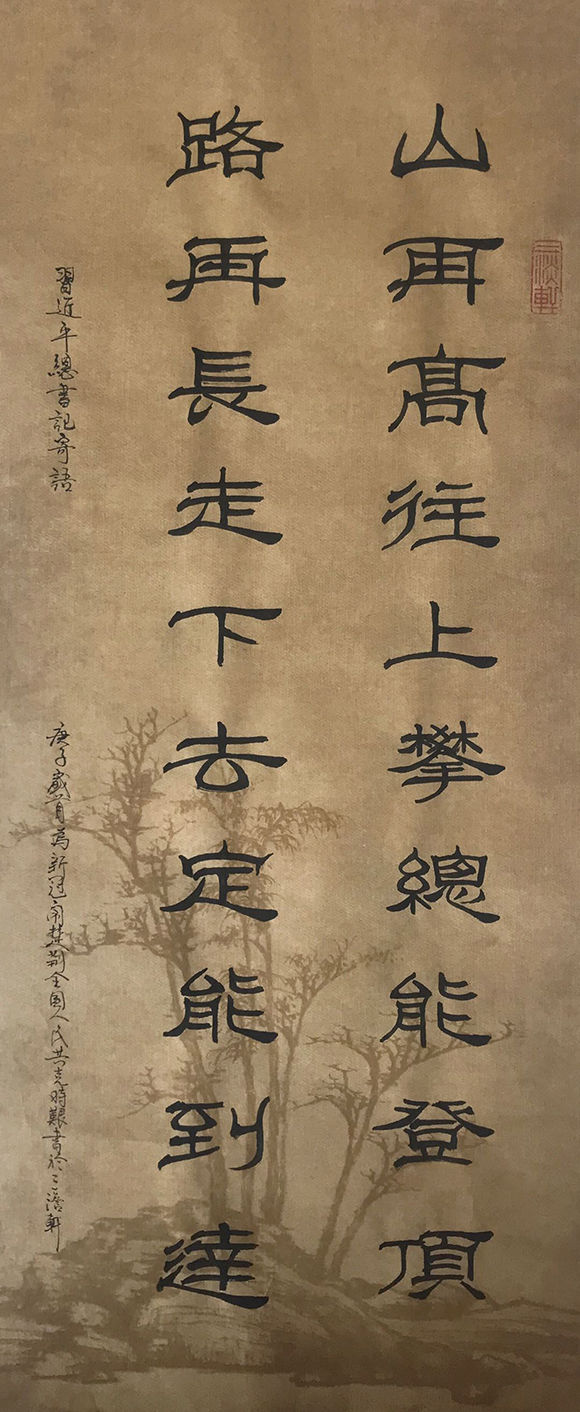 山再高往上攀總能登頂
路再長走下去定能到達
習近平總書記寄語
庚子歲首為新冠鬧楚荆全国人民共克時艱書於三澹軒
三澹軒